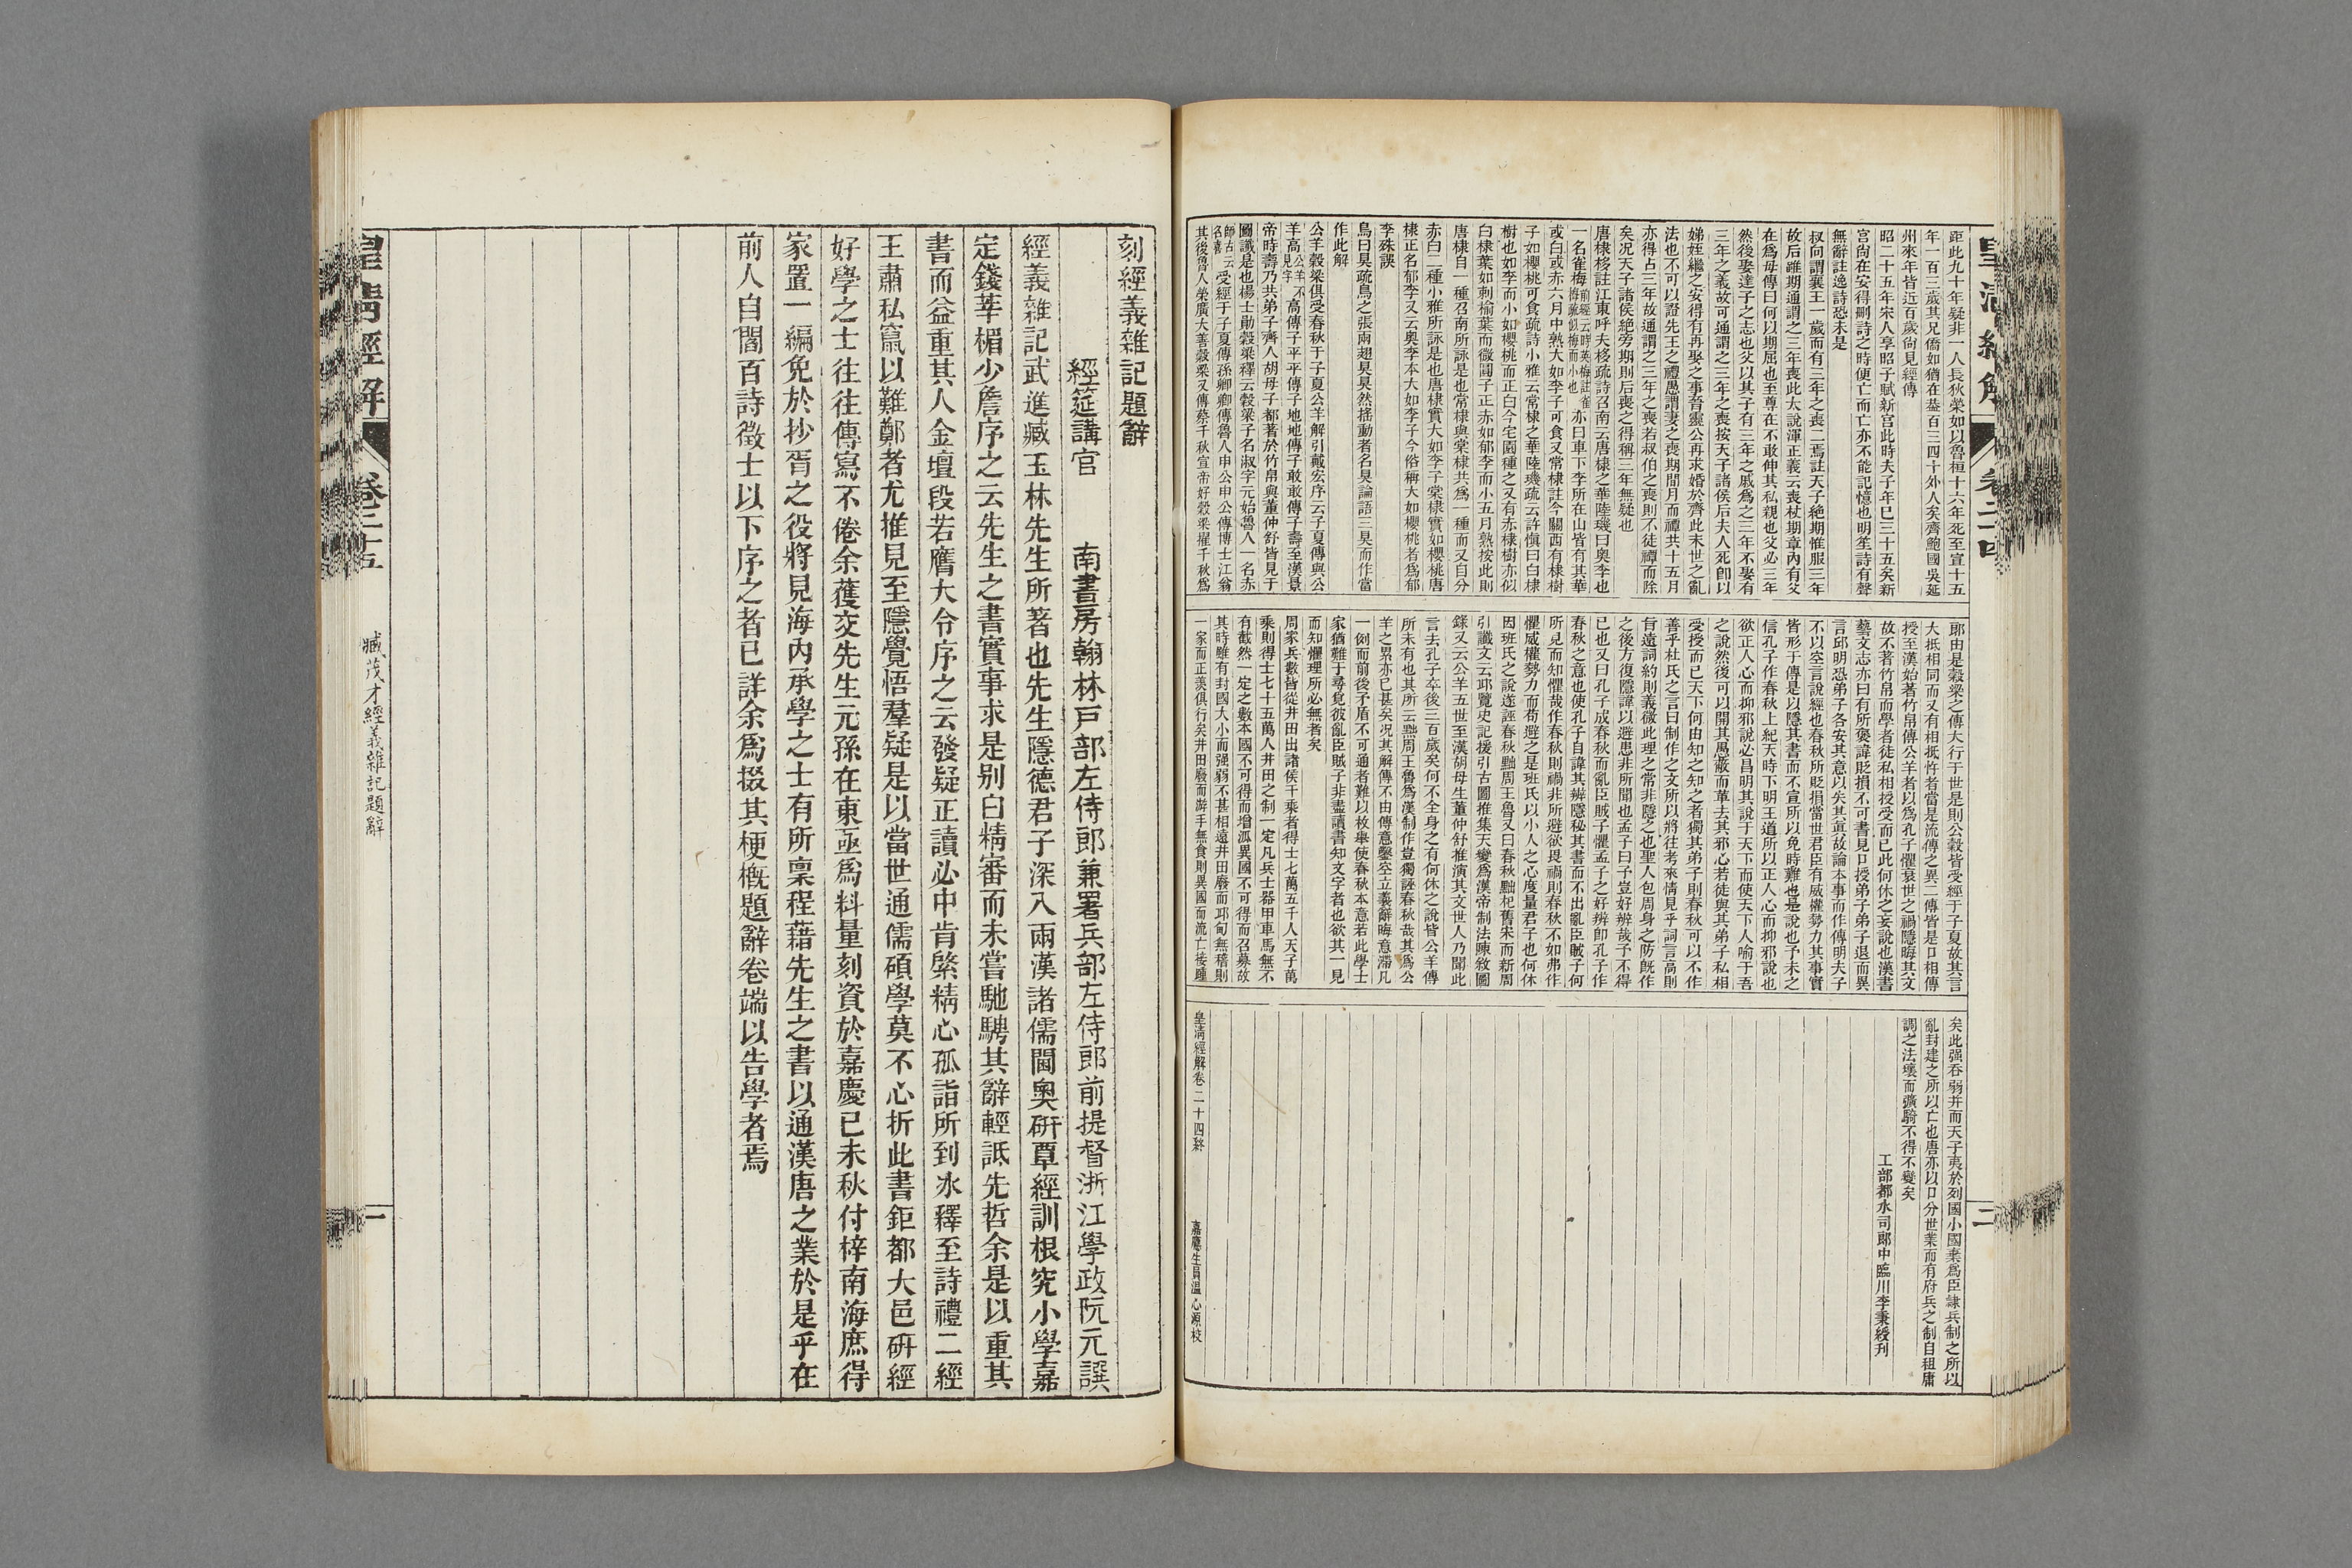 皇清經解
卷二十四
二
距此九十年疑非一人長狄榮如以魯桓十六年死至宣十五
年一百三歲其兄僑如猶在葢百三四十外人矣齊鮑國吳延
州來年皆近百歲尙見經傳
昭二十五年宋人享昭子賦新宮此時夫子年巳三十五矣新
宮尙在安得刪詩之時便亡而亡亦不能記憶也明笙詩有聲
無辭註逸詩恐未是
叔向謂襄王一歲而有三年之喪二焉註天子絶期惟服三年
故后雖期通謂之三年喪此太說渾正義云喪杖期章內有父
在爲母傳曰何以期屈也至尊在不敢伸其私親也父必三年
然後娶達子之志也父以其子有三年之戚爲之三年不娶有
三年之義故可通謂之三年之喪按天子諸侯后夫人死卽以
娣姪繼之安得有再娶之事晉靈公再求婚於齊此末世之亂
法也不可以證先王之禮愚謂妻之喪期閒月而禫共十五月
亦得占三年故通謂之三年之喪若叔伯之喪則不徒禫而除
矣况天子諸侯絶旁期則后喪之得稱三年無疑也
唐棣栘註江東呼夫栘疏詩召南云唐棣之華陸璣曰奥李也
一名雀梅亦曰車下李所在山皆有其華
或白或赤六月中熟大如李子可食又常棣註今關西有棣樹
子如櫻桃可食疏詩小雅云常棣之華陸璣疏云許愼曰白棣
樹也如李而小如櫻桃而正白今宅園種之又有赤棣樹亦似
白棣葉如刺榆葉而微圓子正赤如郁李而小五月熟按此則
唐棣自一種召南所詠是也常棣與棠棣共爲一種而又自分
赤白二種小雅所詠是也唐棣實大如李子棠棣實如櫻桃唐
棣正名郁李又云奥李本大如李子今俗稱大如櫻桃者爲郁
李殊誤
鳥曰狊疏鳥之張兩翅狊狊然搖動者名狊論語三狊而作當
作此解
公羊穀梁俱受春秋于子夏公羊解引戴宏序云子夏傳與公
羊高高傳子平平傳子地地傳子敢敢傳子壽至漢景
帝時壽乃共弟子齊人胡母子都著於竹帛與董仲舒皆見于
圖讖是也楊士勛穀梁釋云穀梁子名淑字元始魯人一名赤
受經于子夏傳孫卿卿傳魯人申公申公傳博士江翁
其後魯人榮廣大善穀梁又傳蔡千秋宣帝好穀梁擢千秋爲
郞由是穀梁之傳大行于世是則公穀皆受經于子夏故其言
大抵相同而又有相抵忤者當是流傳之異二傳皆是口相傳
授至漢始著竹帛傳公羊者以爲孔子懼衰世之禍隱晦其文
故不著竹帛而學者徒私相授受而已此何休之妄說也漢書
藝文志亦曰有所褒諱貶損不可書見口授弟子弟子退而異
言邱明恐弟子各安其意以矢其眞故論本事而作傳明夫子
不以空言說經也春秋所貶損當世君臣有威權勢力其事實
皆形于傳是以隱其書而不宣所以免時難也是說也予未之
信孔子作春秋上紀天時下明王道所以正人心而抑邪說也
欲正人心而抑邪說必昌明其說于天下而使天下人喻于吾
之說然後可以開其愚蔽而革去其邪心若徒與其弟子私相
受授而已天下何由知之知之者獨其弟子則春秋可以不作
善乎杜氏之言曰制作之文所以將往考來情見乎詞言高則
㫖遠詞約則義微此理之常非隱之也聖人包周身之防旣作
之後方復隱諱以避患非所聞也孟子曰予豈好辨哉予不得
已也又曰孔子成春秋而亂臣賊子懼孟子之好辨卽孔子作
春秋之意也使孔子自諱其辨隱秘其書而不出亂臣賊子何
所見而知懼哉作春秋則禍非所避欲畏禍則春秋不如弗作
懼威權勢力而苟避之是班氏以小人之心度量君子也何休
因班氏之說遂誣春秋黜周王魯又曰春秋黜杞舊宋而新周
引讖文云邱覽史記援引古圖推集天變爲漢帝制法陳敘圖
錄又云公羊五世至漢胡母生董仲舒推演其文世人乃聞此
言去孔子卒後三百歲矣何不全身之有何休之說皆公羊傳
所未有也其所云黜周王魯爲漢制作豈獨誣春秋哉其爲公
羊之累亦已甚矣况其解傳不由傳意鑿空立義辭晦意滯凡
一例而前後矛盾不可通者難以枚舉使春秋本意若此學士
家猶難于尋覓彼亂臣賊子非盡讀書知文字者也欲其一見
而知懼理所必無者矣
周家兵數皆從井田出諸侯千乘者得士七萬五千人天子萬
乘則得士七十五萬人井田之制一定凡兵士器甲車馬無不
有截然一定之數本國不可得而增派異國不可得而召募故
其時雖有封國大小而强弱不甚相遠井田廢而邱甸無稽則
一家而正羡俱行矣井田廢而游手無食則異國而流亡接踵
矣此强吞弱并而天子夷於列國小國棄爲臣隷兵制之所以
亂封建之所以亡也唐亦以口分世業而有府兵之制自租庸
調之法壞而彍騎不得不變矣
工部都水司郎中臨川李秉綬刋
皇淸經解卷二十四終
嘉應生員溫心源校
刻經義雜記題辭
經筵講官 南書房翰林戸部左侍郎兼署兵部左侍郎前提督浙江學政阮元譔
經義雜記武進臧玉林先生所著也先生隱德君子深入兩漢諸儒閫奥硏覃經訓根究小學嘉
定錢莘楣少詹序之云先生之書實事求是別白精審而未嘗馳騁其辭輕詆先哲余是以重其
書而益重其人金壇段若膺大令序之云發疑正讀必中肯綮精心孤詣所到冰釋至詩禮二經
王肅私竄以難鄭者尤推見至隱覺悟羣疑是以當世通儒碩學莫不心折此書鉅都大邑硏經
好學之士往往傳寫不倦余獲交先生元孫在東亟爲料量刻資於嘉慶已未秋付梓南海庶得
家置一編免於抄胥之役將見海内承學之士有所稟程藉先生之書以通漢唐之業於是乎在
前人自閻百詩徵士以下序之者已詳余爲掇其梗槪題辭卷端以告學者焉
皇清經解
卷二十五
臧茂才經義雜記題辭
一